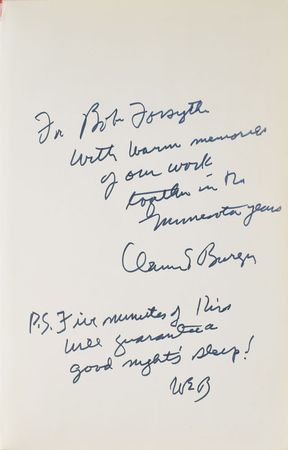 For Bob Forsythe
With warm memories
of our work
together in the
Minnesota years
Warren E Burger
P.S. Five minutes of this
will guarantee a
good night's sleep!
WEB